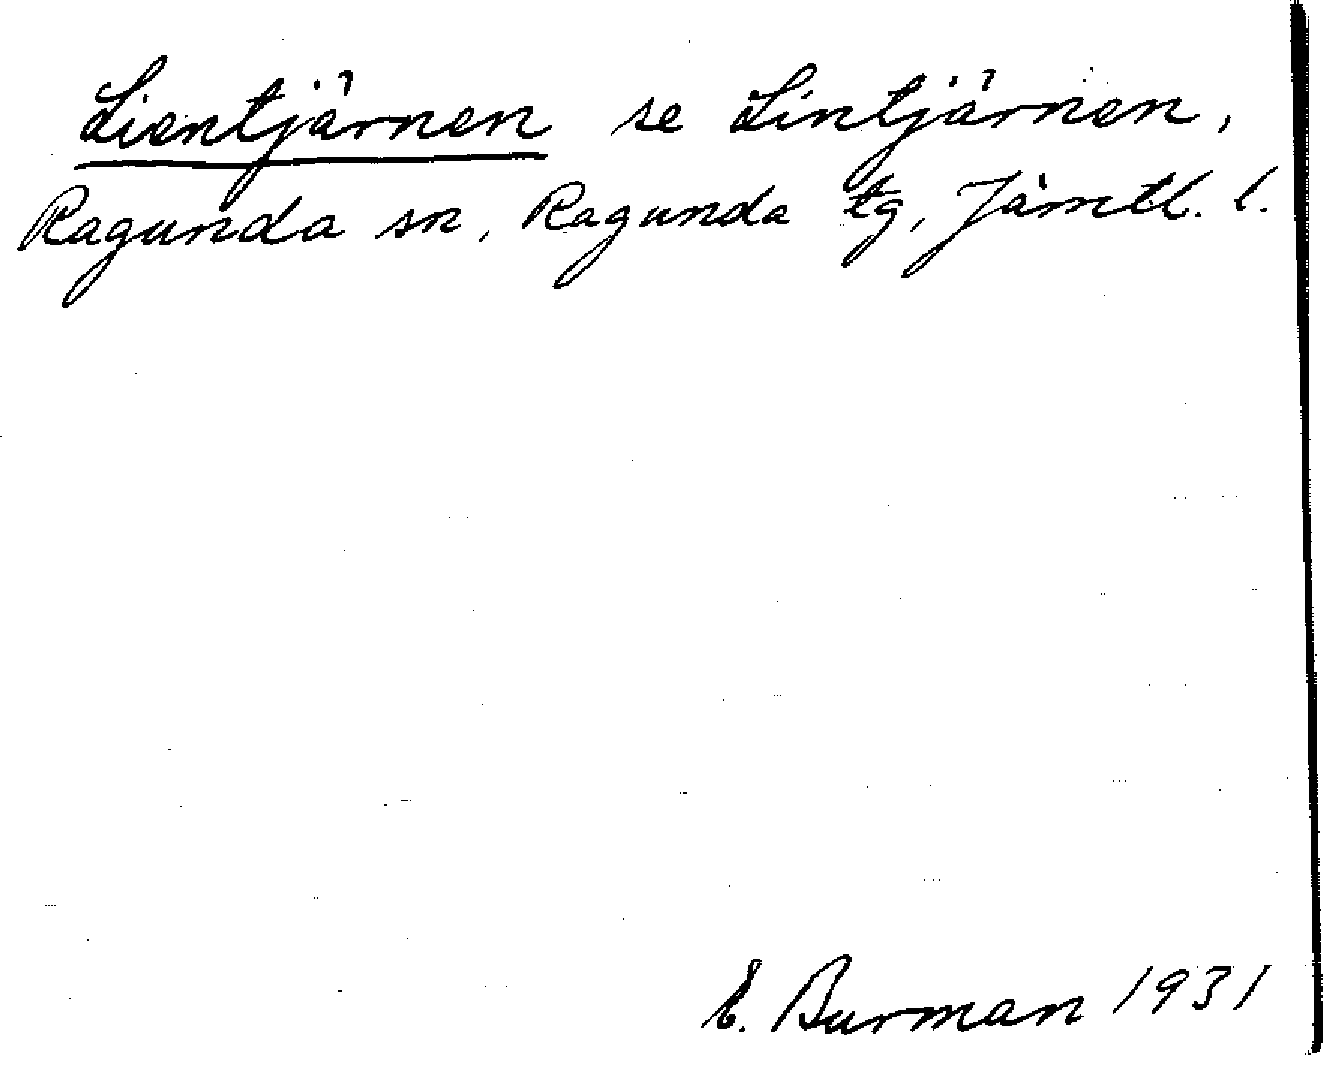 Lientjärnen se Lintjärnen,
Ragunda sn, Ragunda tg, Jämtl. l.
E. Burman 1931